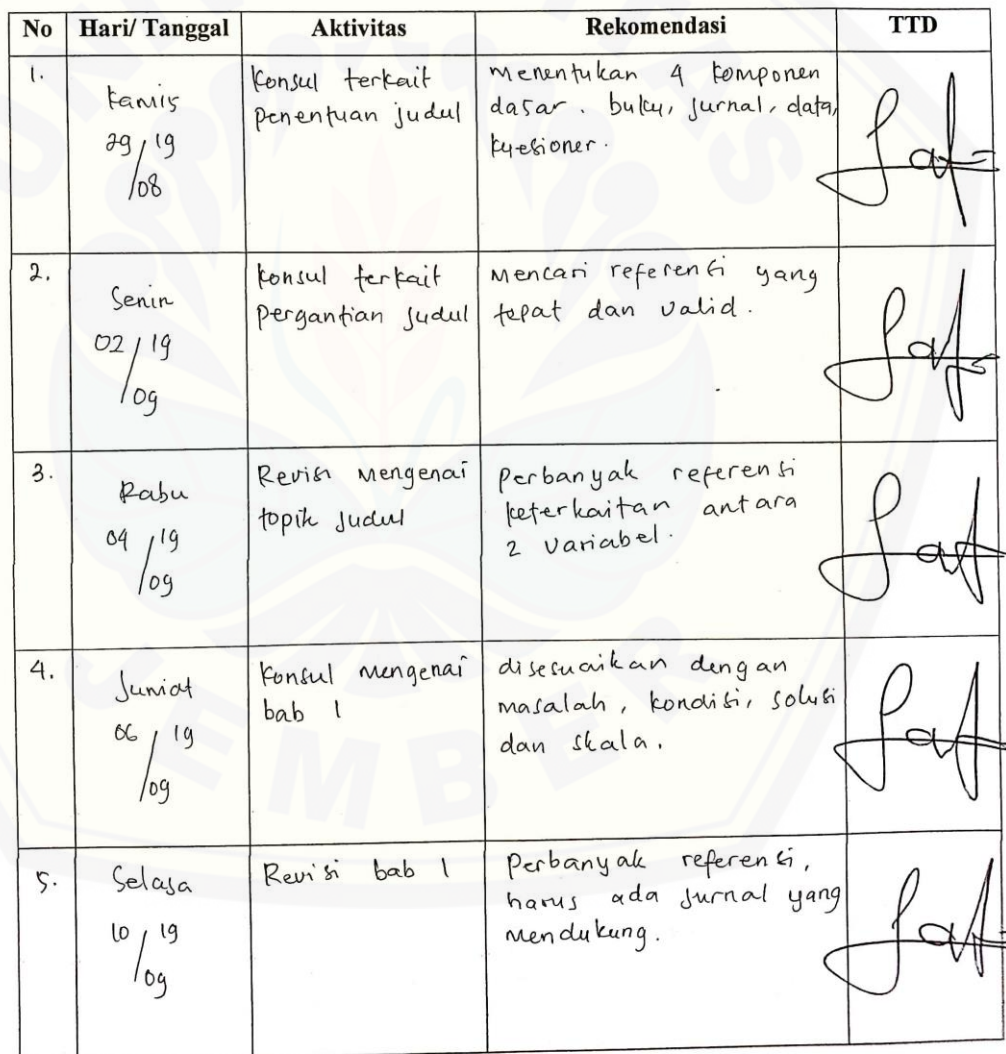 No Hari/ Tanggal Aktivitas Rekomendasi TTD
1.
Kamis
29/19
/08
Konsul terkait
penentuan judul
menentukan 4 komponen
dasar. buku, jurnal, data,
kuesioner.
2.
Senin
02/19
/09
konsul terkait
pergantian judul
Mencari referensi yang
tepat dan valid.
3.
Rabu
04/19
/09
Revisi Mengenai
topik judul
perbanyak referensi
keterkaitan antara
2 variabel.
4.
Jumat
06/19
/09
Konsul mengenai
bab 1
disesuaikan dengan
masalah, kondisi, solusi
dan skala.
5.
Selasa
10/19
/09
Revisi bab 1
Perbanyak referensi,
harus ada jurnal yang
mendukung.